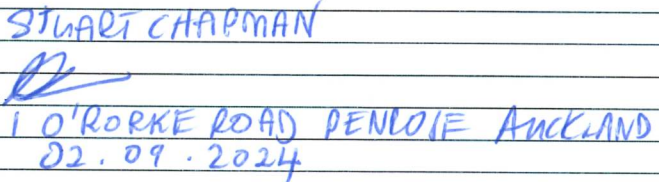 STUART CHAPMAN
1 O'RORKE ROAD PENROSE AUCKLAND
02.09.2024